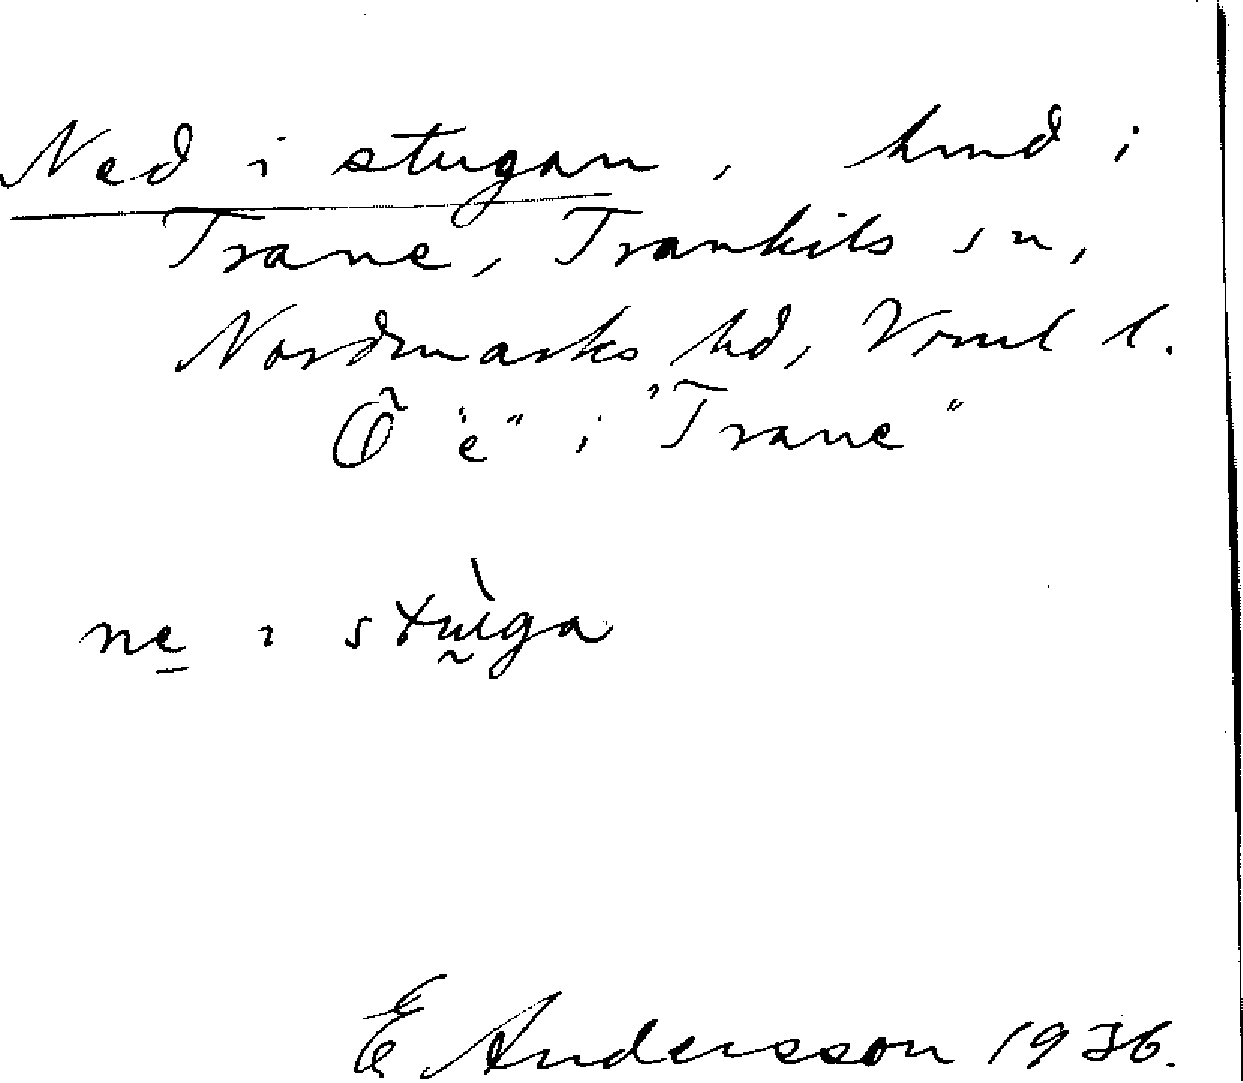 Ned i stugan, hmd i
Trane, Trankils sn,
Nordmarks hd, Vrml l.
Ö "e" i "Trane"
ne i stuga
E Andersson 1936.